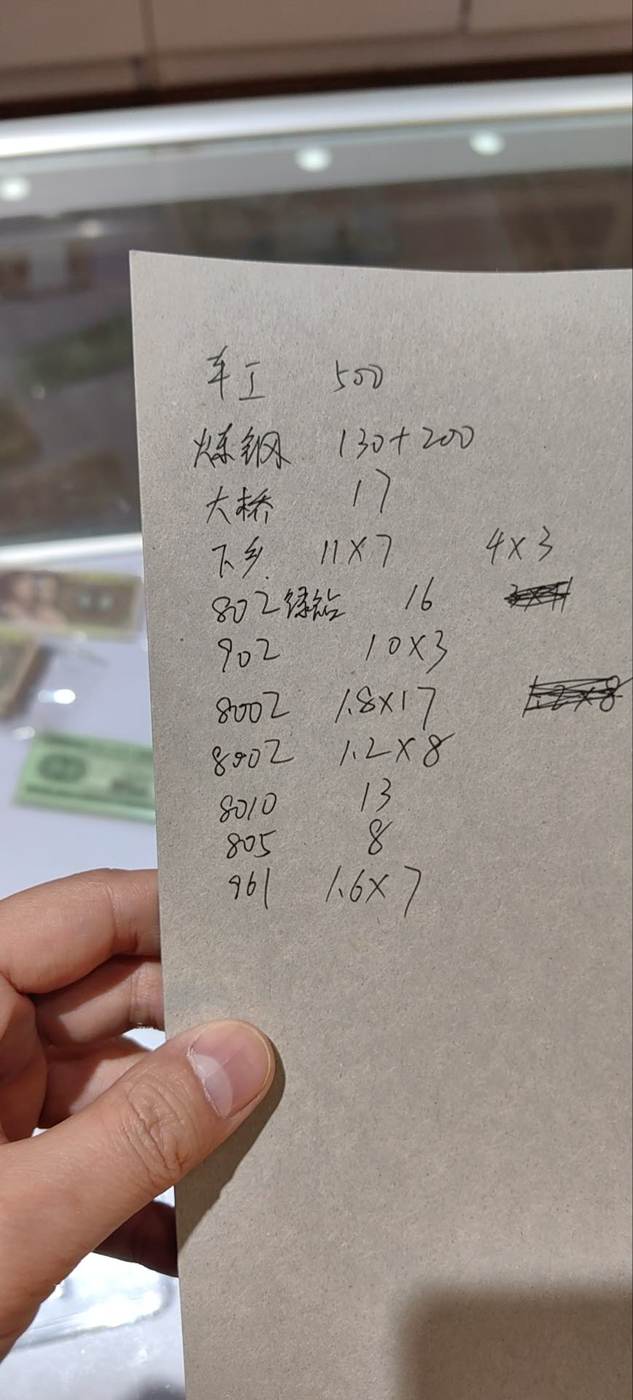 车工 500
炼钢 130+200
大桥 17
下乡 11×7 4×3
802绿钻 16
902 10×3
8002 1.8×17
8002 1.2×8
8010 13
805 8
961 1.6×7